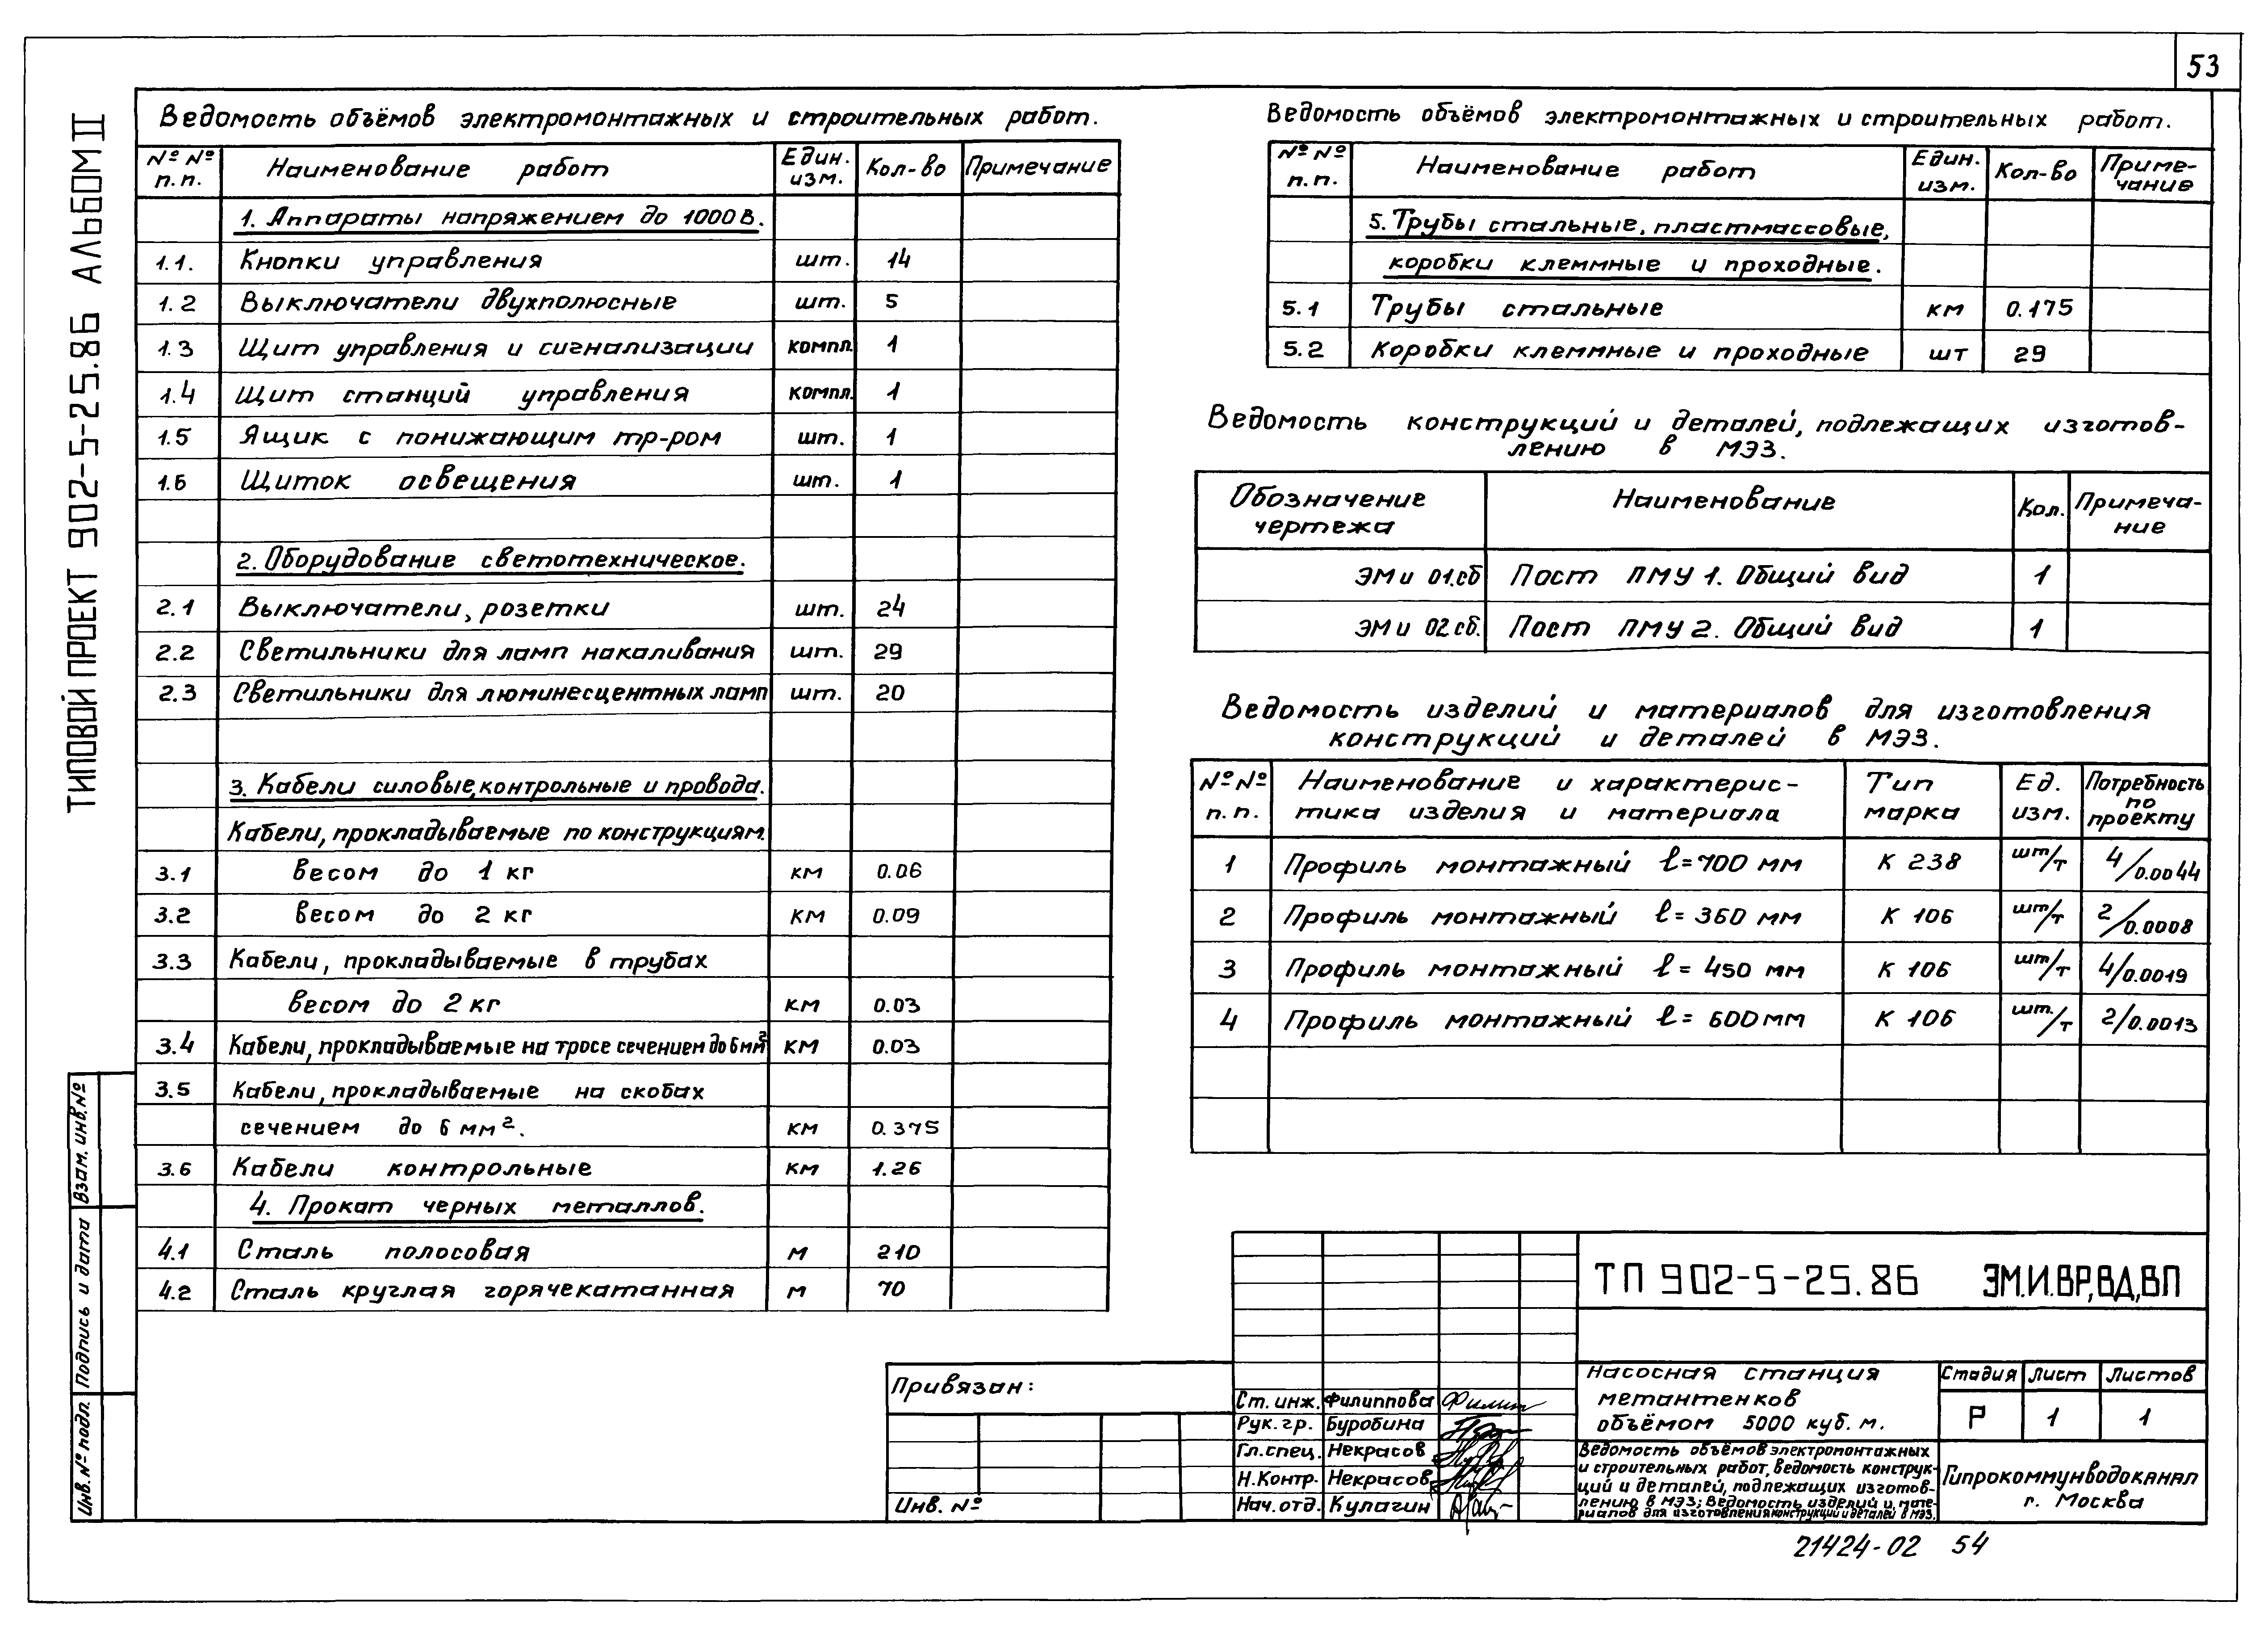 53
ТИПОВОЙ ПРОЕКТ 902-5-25.86 АЛЬБОМ II
Ведомость объёмов электромонтажных и строительных работ.
№№ п.п. Наименование работ Един. изм. Кол-во Примечание
1. Аппараты напряжением до 1000 В.
1.1. Кнопки управления шт. 14
1.2 Выключатели двухполюсные шт. 5
1.3 Щит управления и сигнализации компл. 1
1.4 Щит станций управления компл. 1
1.5 Ящик с понижающим тр-ром шт. 1
1.6 Щиток освещения шт. 1
2. Оборудование светотехническое.
2.1 Выключатели, розетки шт. 24
2.2 Светильники для ламп накаливания шт. 29
2.3 Светильники для люминесцентных ламп шт. 20
3. Кабели силовые, контрольные и провода.
Кабели, прокладываемые по конструкциям.
3.1 весом до 1 кг км 0.06
3.2 весом до 2 кг км 0.09
3.3 Кабели, прокладываемые в трубах
весом до 2 кг км 0.03
3.4 Кабели, прокладываемые на тросе сечением до 6 мм² км 0.03
3.5 Кабели, прокладываемые на скобах
сечением до 6 мм². км 0.375
3.6 Кабели контрольные км 1.26
4. Прокат черных металлов.
4.1 Сталь полосовая м 210
4.2 Сталь круглая горячекатанная м 70
Ведомость объёмов электромонтажных и строительных работ.
№№ п.п. Наименование работ Един. изм. Кол-во Приме-чание
5. Трубы стальные, пластмассовые,
коробки клеммные и проходные.
5.1 Трубы стальные км 0.175
5.2 Коробки клеммные и проходные шт 29
Ведомость конструкций и деталей, подлежащих изготов-
лению в МЭЗ.
Обозначение чертежа Наименование Кол. Примеча-ние
ЭМи 01.сб Пост ПМУ 1. Общий вид 1
ЭМи 02 сб. Пост ПМУ 2. Общий вид 1
Ведомость изделий и материалов для изготовления
конструкций и деталей в МЭЗ.
№№ п.п. Наименование и характерис-тика изделия и материала Тип марка Ед. изм. Потребность по проекту
1 Профиль монтажный ℓ=700 мм К 238 шт/т 4/0.0044
2 Профиль монтажный ℓ= 360 мм К 106 шт/т 2/0.0008
3 Профиль монтажный ℓ= 450 мм К 106 шт/т 4/0.0019
4 Профиль монтажный ℓ= 600 мм К 106 шт./т 2/0.0013
Взам. инв.№
Подпись и дата
Инв.№ подл.
Привязан:
Инв. №
Ст. инж. Филиппова
Рук. гр. Буробина
Гл. спец. Некрасов
Н. Контр. Некрасов
Нач. отд. Кулагин
ТП 902-5-25.86 ЭМ.И.ВР,ВД,ВП
Насосная станция
метантенков
объёмом 5000 куб. м.
Стадия Лист Листов
Р 1 1
Ведомость объёмов электромонтажных
и строительных работ, ведомость конструк-
ций и деталей, подлежащих изготов-
лению в МЭЗ; Ведомость изделий и мате-
риалов для изготовления конструкций и деталей в МЭЗ.
Гипрокоммунводоканал
г. Москва
21424-02 54